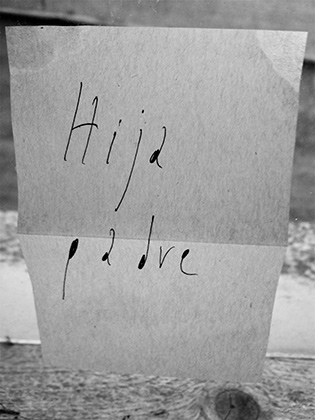 Hija
padre